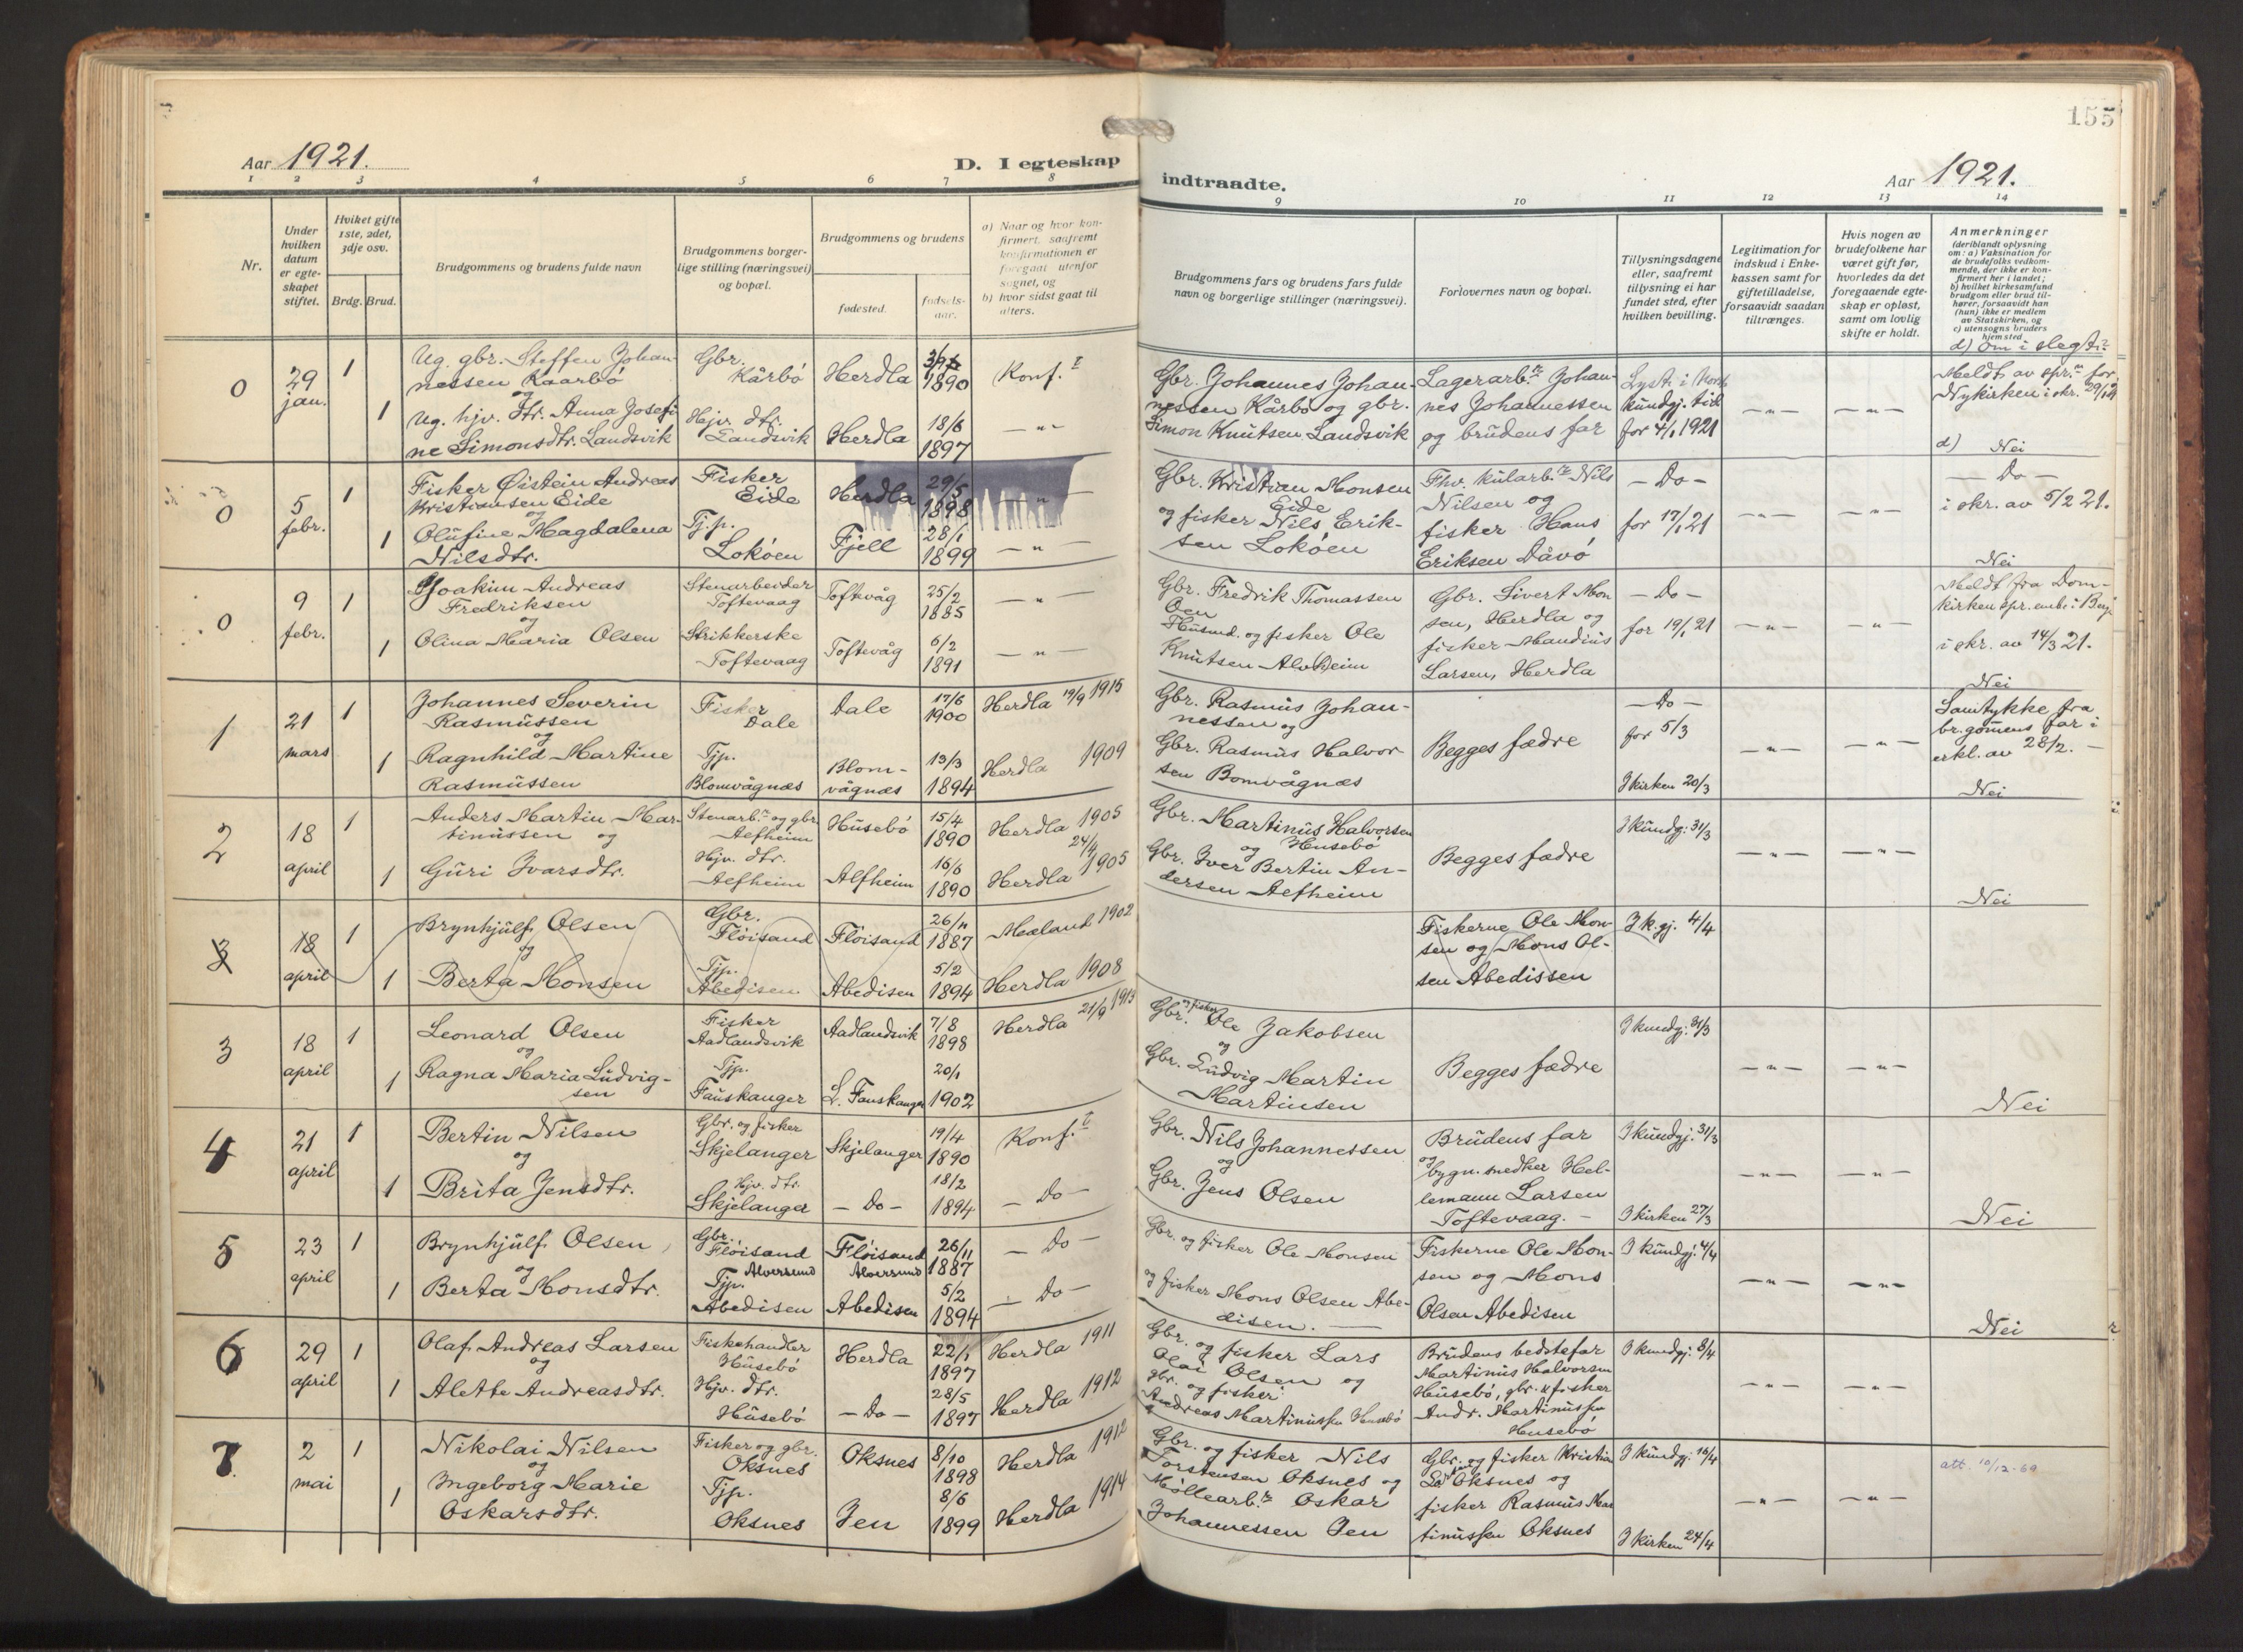 155
Aar 1921.
D. I egteskap
indtraadte.
Aar 1921.
1 2 3 4 5 6 7 8
9 10 11 12 13 14
Nr.
Under hvilken datum er egteskapet stiftet.
Hviket gifte 1ste, 2det, 3dje osv.
Brdg. Brud.
Brudgommens og brudens fulde navn
Brudgommens borgerlige stilling (næringsvei) og bopæl.
Brudgommens og brudens
fødested.
fødselsaar.
a) Naar og hvor konfirmert, saafremt konfirmationen er foregaat utenfor sognet, og
b) hvor sidst gaat til alters.
Brudgommens fars og brudens fars fulde navn og borgerlige stillinger (næringsvei).
Forlovernes navn og bopæl.
Tillysningsdagene eller, saafremt tillysning ei har fundet sted, efter hvilken bevilling.
Legitimation for indskud i Enkekassen samt for giftetilladelse, forsaavidt saadan tiltrænges.
Hvis nogen av brudefolkene har været gift før, hvorledes da det foregaaende egteskap er opløst, samt om lovlig skifte er holdt.
Anmerkninger
(deriblandt oplysning om: a) Vaksination for de brudefolks vedkommende, der ikke er konfirmert her i landet; b) hvilket kirkesamfund brudgom eller brud tilhører, forsaavidt han (hun) ikke er medlem av Statskirken, og c) utensogns bruders hjemsted
d) om i slegt?
0
29 jan.
1
Ug. gbr. Steffen Johannessen Kaarbø
og
1
Ug. hjv. dtr. Anna Josefine Simonsdtr. Landsvik
Gbr. Kårbø
Hjv. dtr. Landsvik
Herdla
1890
Herdla
18/6 1897
Konf.
— " —
Gbr. Johannes Johannessen Kårbø og gbr. Simon Knutsen Landsvik
Lagerarb. Johannes Johannessen og brudens far
kundgj. tid for 4/1 1921
— " —
— " —
Meldt av spr. for Nykirken i skr. 29/1
d) Nei
0
5 febr.
1
Fisker Øistein Andreas Kristiansen Eide
og
1
Olufine Magdalena Nilsdtr.
Fisker Eide
Tj.p. Lokøen
Herdla
29/5 1898
Fjell
28/1 1899
— " —
— " —
Gbr. Kristian Monsen Eide
og fisker Nils Eriksen Lokøen
Fhv. kularb. Nils Nilsen og fisker Hans Eriksen Dåvø
— Do —
for 17/1 21
— " —
— " —
— Do —
i skr. av 5/2 21.
Nei
0
9 febr.
1
Joakim Andreas Fredriksen
og
1
Olina Maria Olsen
Stenarbeider Toftevaag
Strikkerske Toftevaag
Toftevåg
25/2 1885
Toftevåg
6/2 1891
— " —
— " —
Gbr. Fredrik Thomassen
Husmd. og fisker Ole Knutsen Alvheim
Gbr. Sivert Monsen, Herdla og fisker Mandius Larsen, Herdla
— Do —
for 19/1 21
— " —
— " —
Meldt fra Domkirken spr. emb. i Berg.
i skr. av 14/3 21.
Nei
1
21 mars
1
Johannes Severin Rasmussen
og
1
Ragnhild Martine Rasmussen
Fisker Dale
Tjp. Blomvågnæs
Dale
17/6 1900
Blomvågnæs
13/3 1894
Herdla 19/9 1915
Herdla 1909
Gbr. Rasmus Johannessen og
Gbr. Rasmus Halvorsen Bomvågnæs
Begges fædre
— Do —
for 5/3
I kirken 20/3
— " —
— " —
Samtykke fra br.gomens far i erkl. av 28/2. —
Nei
2
18 april
1
Anders Martin Martinussen og
1
Guri Ivarsdtr.
Stenarb. og gbr. Aefheim
Hjv. dtr. Aefheim
Husebø
15/4 1890
Alfheim
16/6 1890
Herdla 1905
Herdla 24/4 1905
Gbr. Martinus Halvorsen Husebø
og
Gbr. Iver Bertin Andersen Aefheim
Begges fædre
I kundgj: 31/3
— " —
— " —
Nei
3
18 april
1
Brynhjulf Olsen
og
1
Berta Monsen
Gbr. Fløisand
Tjp. Abedisen.
Fløisand
26/11 1887
Abedisen
5/2 1894
Mæland 1902
Herdla 1908
Fiskerne Ole Monsen og Mons Olsen Abedissen
I k.gj. 4/4
3
18 april
1
Leonard Olsen
og
1
Ragna Maria Ludvigsen
Fisker Aadlandsvik
Tjp. Fauskanger
Aadlandsvik
7/8 1898
L. Fauskanger
20/1 1902
Herdla 21/9 1913
Gbr. og fisker Ole Jakobsen
og
Gbr. Ludvig Martin Martinsen
Begges fædre
I kundgj: 31/3
— " —
— " —
Nei
4
21 april
1
Bertin Nilsen
og
1
Brita Jensdtr.
Gbr. og fisker Skjelanger
Hjv. dtr. Skjelanger
Skjelanger
19/4 1890
— Do —
18/2 1894
Konf.
— Do —
Gbr. Nils Johannessen
og
Gbr. Jens Olsen
Brudens far
og bygn. snedker Hellemann Larsen Toftevaag. —
I kundgj: 31/3
I kirken 27/3
— " —
— " —
Nei
5
23 april
1
Brynhjulf Olsen
og
1
Berta Monsdtr.
Gbr. Fløisand Alversund
Tjp. Abedisen
Fløisand Alversund
26/11 1887
Abedisen
5/2 1894
— Do —
— Do —
Gbr. og fisker Ole Monsen
og fisker Mons Olsen Abedisen. —
Fiskerne Ole Monsen og Mons Olsen Abedisen
I kundgj: 4/4
— " —
— " —
Nei
6
29 april
1
Olaf Andreas Larsen
og
1
Alette Andreasdtr.
Fiskehandler Husebø
Hjv. dtr. Husebø
Herdla
22/1 1897
— Do —
28/5 1897
Herdla 1911
Herdla 1912
Gbr. og fisker Lars Olai Olsen og
gbr. og fisker Andreas Martinussen Husebø
Brudens bedstefar Martinus Halvorsen Husebø, gbr. & fisker Andr. Martinussen Husebø
I kundgj: 8/4
— " —
— " —
7.
2 mai
1
Nikolai Nilsen
og
1
Ingeborg Marie Oskarsdtr.
Fisker og gbr. Oksnes
Tjp. Oksnes
Oksnes
8/10 1898
Jen
8/6 1899
Herdla 1912
Herdla 1914
Gbr. og fisker Nils Torstensen Oksnes og
Møllearb. Oskar Johannessen Jen
Gbr. og fisker Kristian Oksnes og fisker Rasmus Martinussen Oksnes
I kundgj: 16/4
I kirken 24/4
— " —
— " —
att. 10/12-69